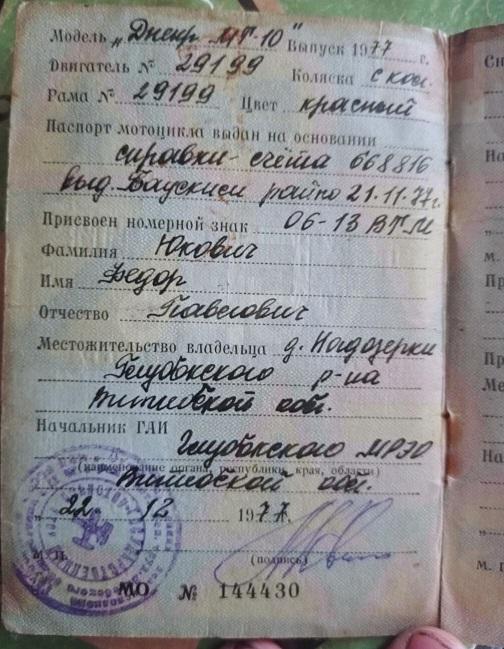 Модель „Днепр МТ-10" Выпуск 1977 г.
Двигатель № 29199 Коляска с кол.
Рама № 29199 Цвет красный
Паспорт мотоцикла выдан на основании
справки-счёта 668816
выд. Баускиси райпо 21.11.77г.
Присвоен номерной знак 06-13 ВТМ
Фамилия Юкович
Имя Федор
Отчество Павелович
Местожительство владельца д. Надозерки
Глубокского р-на
Витебской обл.
Начальник ГАИ
Глубокского МРЭО
(наименование органа, республики, края, области)
Витебской обл.
„ 22 12 1977г.
(подпись)
МО № 144430